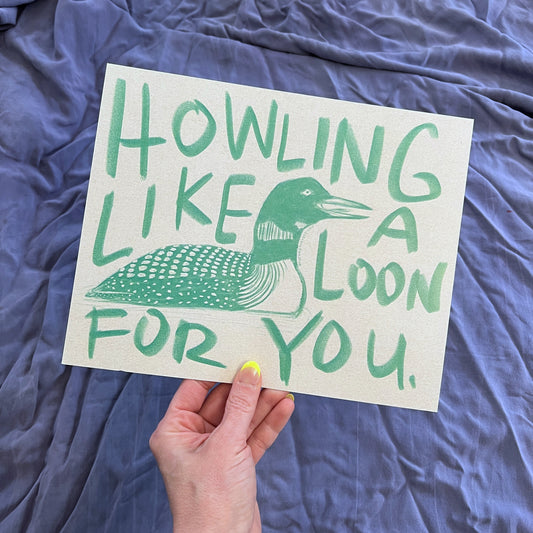 HOWLING
LIKE A
LOON
FOR YOU.